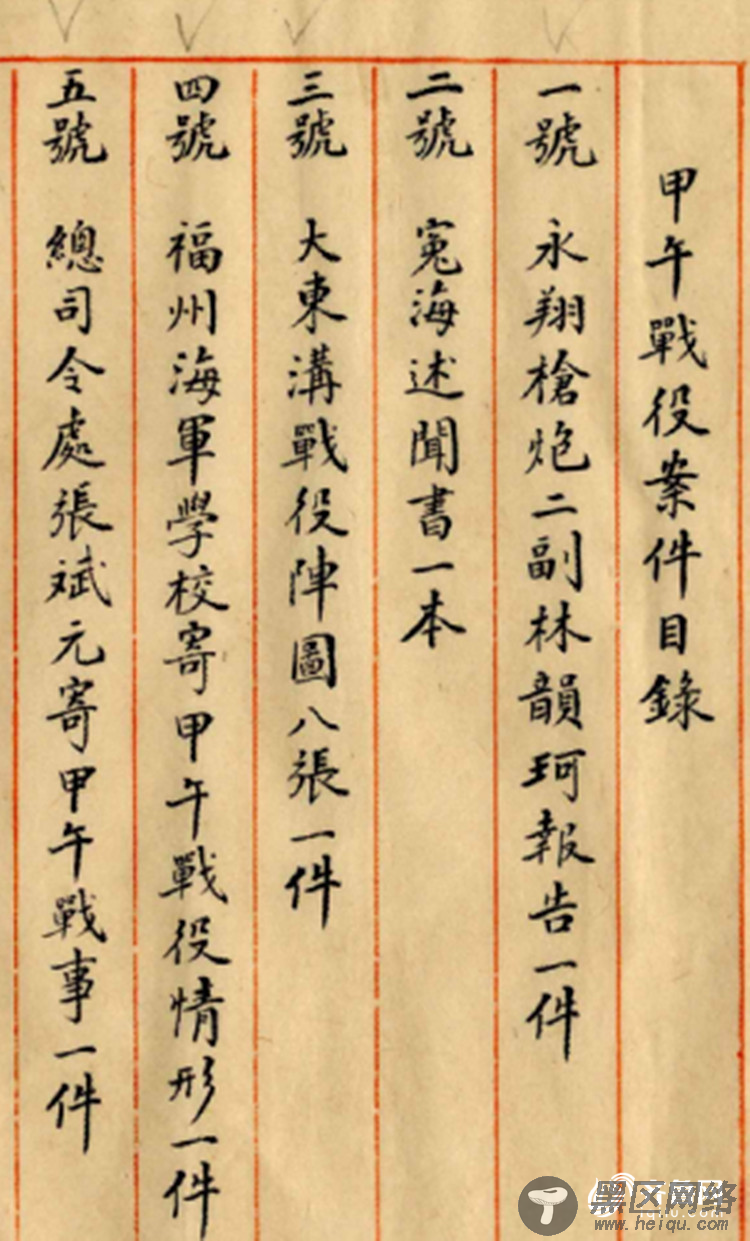 甲午戰役案件目錄
一號 永翔槍炮二副林韻珂報告一件
二號 寃海述聞書一本
三號 大東溝戰役陣圖八張一件
四號 福州海軍學校寄甲午戰役情形一件
五號 總司令處張斌元寄甲午戰事一件
黑区网络
www.heiqu.com